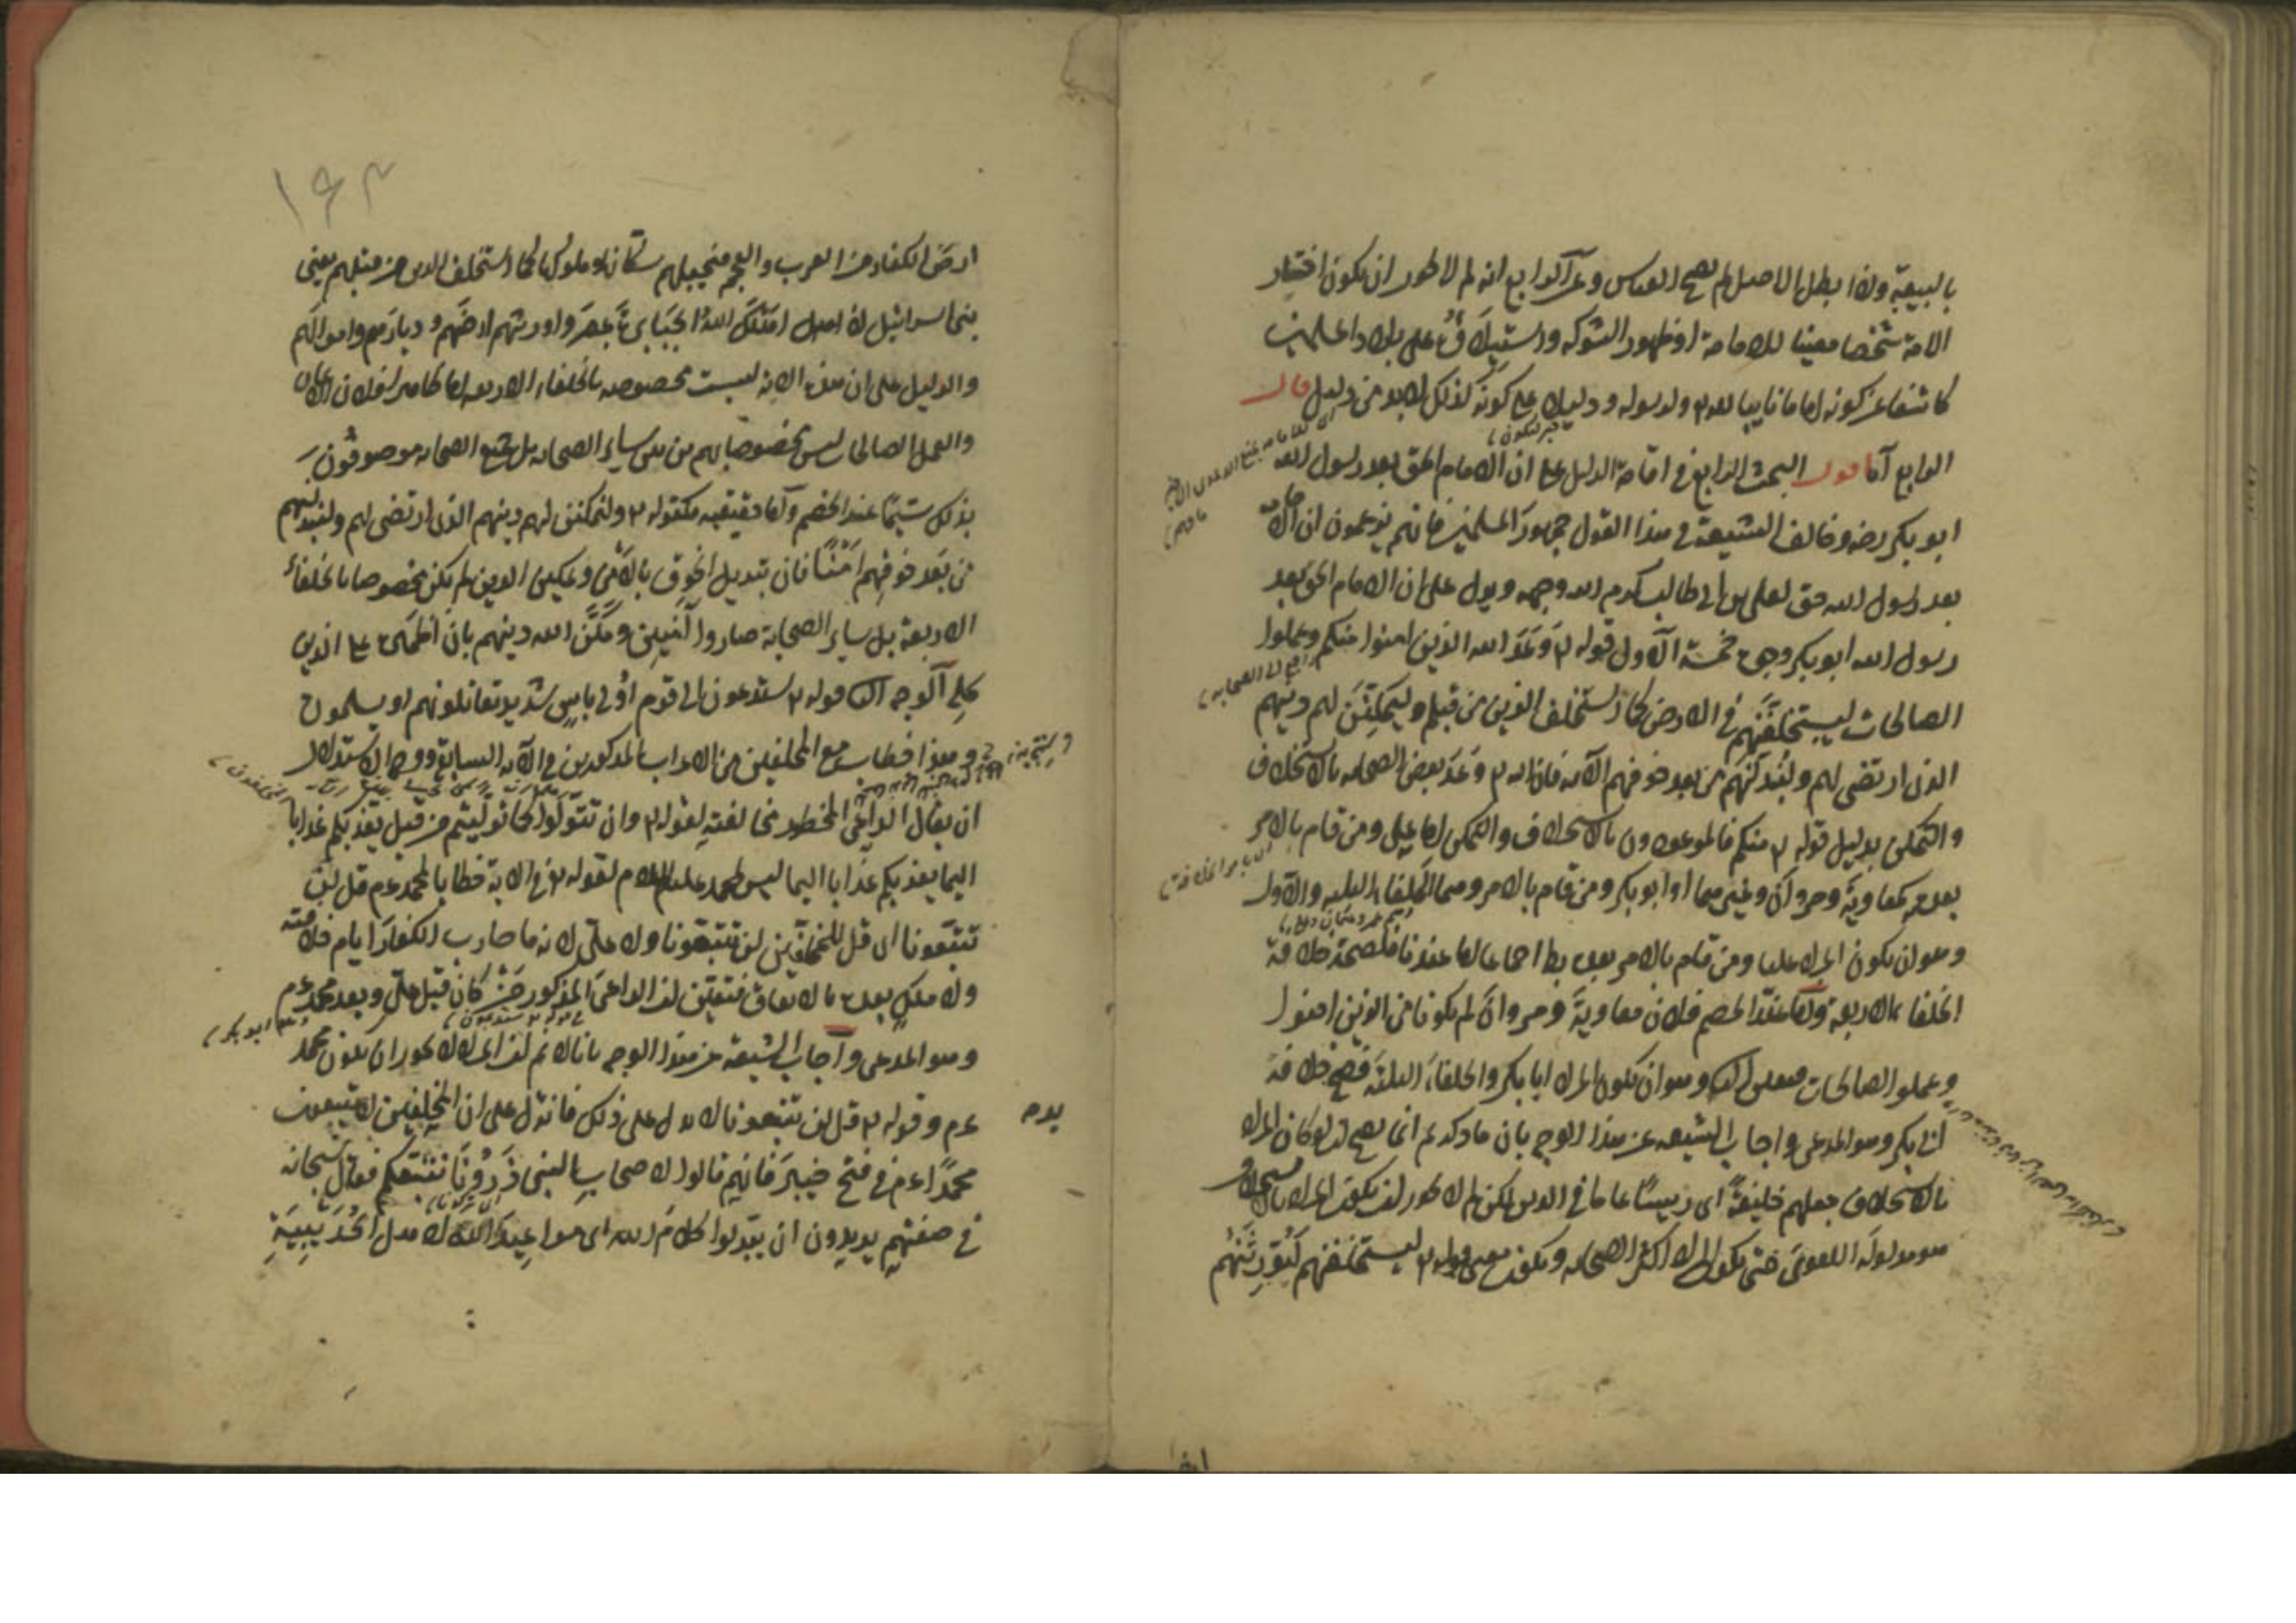 بالبيعة واذا بطل الاصل لم يصح القياس وعن الرابع انه لم لا يجوز ان يكون اختيار
الامة شخصا معينا للامامة او ظهور الشوكة واستيلاؤه على بلاد المسلمين
كاشفا عن كونه اماما نايبا لله ولرسوله ودليلا على كونه كذلك لابد من دليل قال
الرابع اقول البحث الرابع في اقامة الدليل على ان الامام الحق بعد رسول الله
ابو بكر رضه وخالف الشيعة في هذا القول جمهور المسلمين فانهم يزعمون ان الامامة
بعد رسول الله حق لعلى بن ابى طالب كرم الله وجهه ويدل على ان الامام الحق بعد
رسول الله ابو بكر وجوه خمسة الاول قوله وعد الله الذين امنوا منكم وعملوا
الصالحات ليستخلفنهم فى الارض كما استخلف الذين من قبلهم وليمكنن لهم دينهم
الذى ارتضى لهم وليبدلنهم من بعد خوفهم الآية فان الله وعد بعض الصحابة بالاستخلاف
والتمكين بدليل قوله منكم فالموعودون بالاستخلاف والتمكين اما على ومن قام بالامر
بعده كمعاوية ومروان وغيرهما او ابو بكر ومن قام بالامر وهما الخلفاء الثلثة والاول
وهو ان يكون المراد عليا ومن قام بالامر بعده بط اجماعا اما عندنا فلصحة خلافة
الخلفاء الاربعة واما عند الخصم فلان معاوية ومروان لم يكونا من الذين امنوا
وعملوا الصالحات فتعين الثانى وهو ان يكون المراد ابا بكر والخلفاء الثلثة فصح خلافة
ابى بكر وهو المدعى واجاب الشيعة عن هذا الوجه بان ما ذكرتم انما يصح ان لو كان المراد
بالاستخلاف جعلهم خليفة اى رييسا عاما فى الدين لكن لم لا يجوز ان يكون المراد بالاستخلاف
هو مدلوله اللغوى حتى يكون المراد اكثر الصحابة ويكون معنى قوله ليستخلفنهم ليورثنهم
١٦٣
ارض الكفار من العرب والعجم فيجعلهم سكانا وملوكا كما استخلف الذين من قبلهم يعنى
بنى اسرائيل اذ اهلك الله الجبابرة بمصر واورثهم ارضهم وديارهم واموالهم
والدليل على ان هذه الاية ليست مخصوصة بالخلفاء الاربعة فلان الايمان
والعمل الصالح ليس مخصوصا بهم من بين ساير الصحابة بل جميع الصحابة موصوفون
بذلك سيما عند الخصم واما قوله وليمكنن لهم دينهم الذى ارتضى لهم وليبدلنهم
من بعد خوفهم امنا فان تبديل الخوف بالامن وتمكين الدين لم يكن مخصوصا بالخلفاء
الاربعة بل ساير الصحابة صاروا آمنين ومكن الله دينهم بان اظهره على الدين
كله الوجه الثانى قوله ستدعون الى قوم اولى باس شديد تقاتلونهم او يسلمون
وهذا خطاب مع المخلفين من الاعراب المذكورين فى الآية السابقة ووجه الاستدلال
ان يقال الداعى المحظور مخالفته لقوله وان تتولوا كما توليتم من قبل يعذبكم عذابا
اليما ليس محمد عليه السلام لقوله فى الاية خطابا لمحمد عم قل لن
تتبعونا اى قل للمخلفين لن تتبعونا ولا على لانه ما حارب الكفار ايام خلافته
ولا ملك بعده بالاتفاق فتعين ان الداعى المذكور من كان قبل على وبعد محمد عم
وهو المدعى واجاب الشيعة عن هذا الوجه بانا لا نم ان المراد لا يجوز ان يكون محمد
عم وقوله قل لن تتبعونا لا يدل على ذلك فانه يدل على ان المخلفين لا يتبعون
محمدا عم فى فتح خيبر فانهم قالوا لاصحاب النبى ذرونا نتبعكم فقال سبحانه
فى صفتهم يريدون ان يبدلوا كلام الله اى مواعيد الله لاهل الحديبية